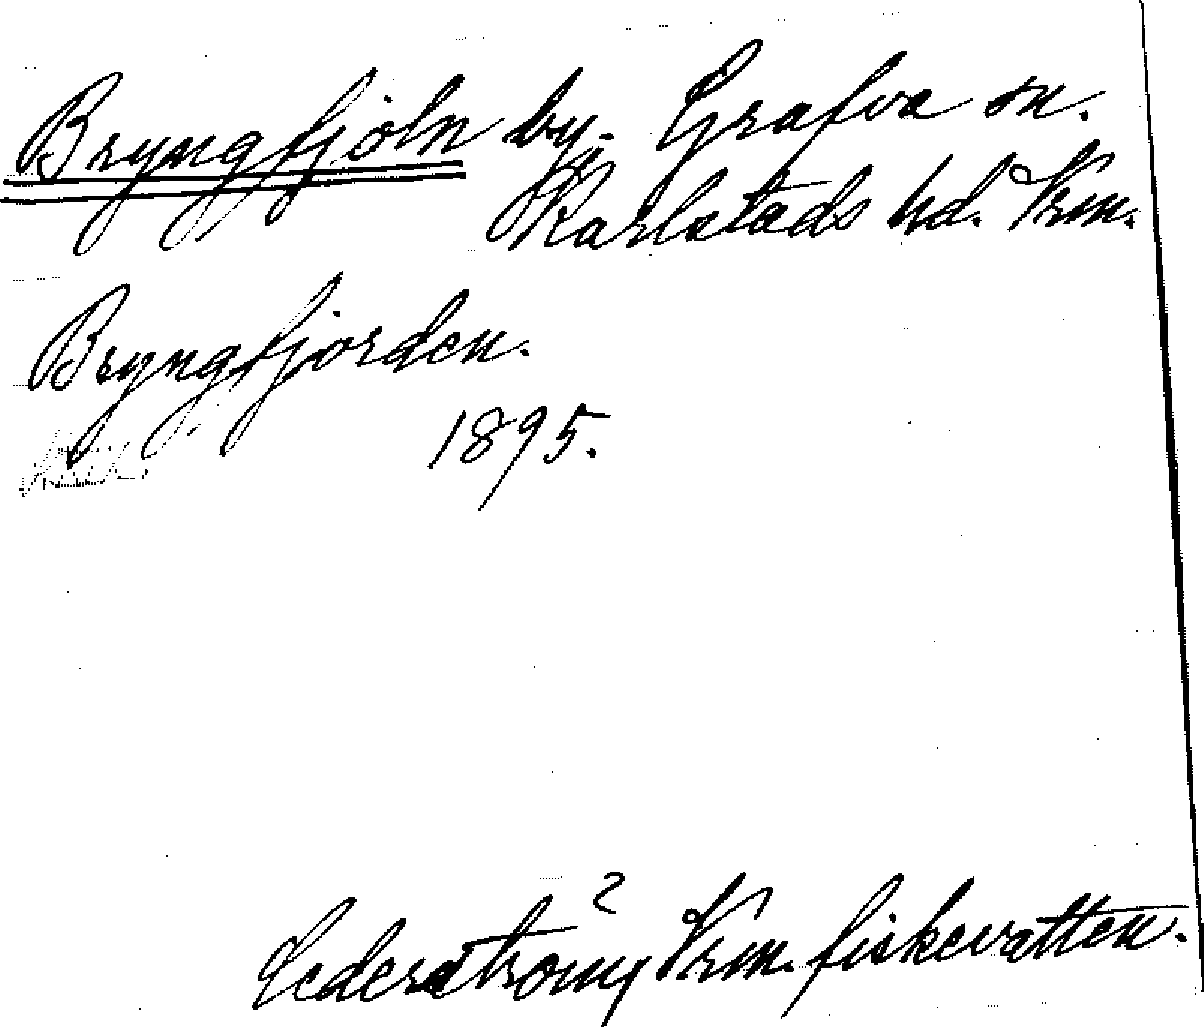 Bryngfjöln by. Grafva sn.
Karlstads hd. Vrm.
Bryngfjorden.
1895.
Cederström, Vrm. fiskevatten.